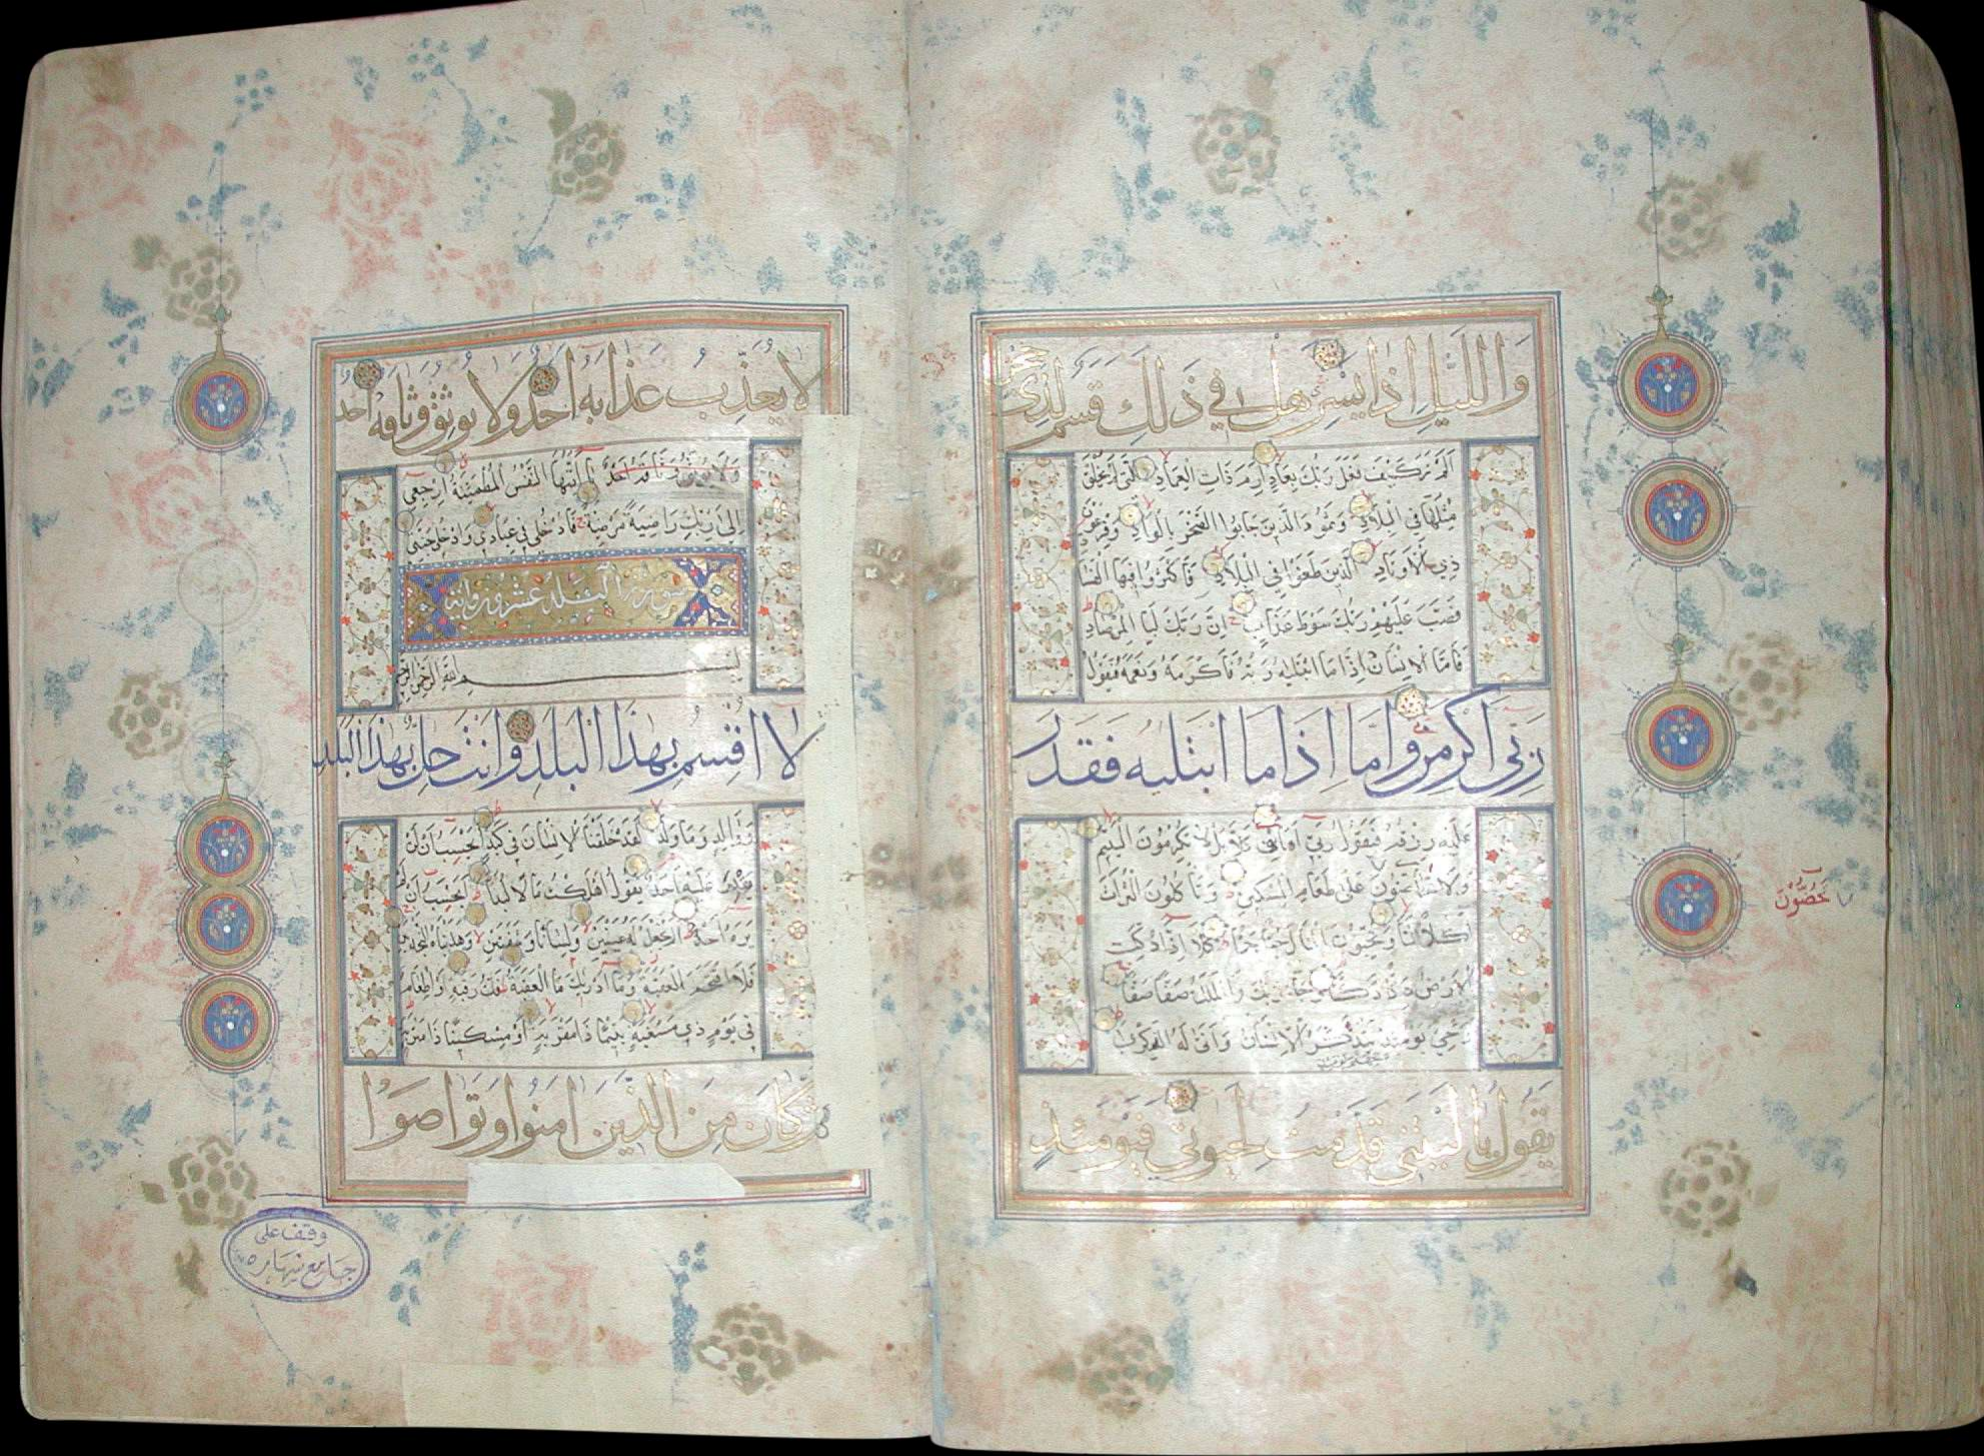 وَاللَّيْلِ اِذَا يَسْرِ هَلْ فِي ذَلِكَ قَسَمٌ لِذِي حِجْرٍ
اَلَمْ تَرَ كَيْفَ فَعَلَ رَبُّكَ بِعَادٍ اِرَمَ ذَاتِ الْعِمَادِ الَّتِي لَمْ يُخْلَقْ
مِثْلُهَا فِي الْبِلَادِ وَثَمُودَ الَّذِينَ جَابُوا الصَّخْرَ بِالْوَادِ وَفِرْعَوْنَ
ذِي الْاَوْتَادِ الَّذِينَ طَغَوْا فِي الْبِلَادِ فَاَكْثَرُوا فِيهَا الْفَسَادَ
فَصَبَّ عَلَيْهِمْ رَبُّكَ سَوْطَ عَذَابٍ اِنَّ رَبَّكَ لَبِالْمِرْصَادِ
فَاَمَّا الْاِنْسَانُ اِذَا مَا ابْتَلَيهُ رَبُّهُ فَاَكْرَمَهُ وَنَعَّمَهُ فَيَقُولُ
رَبِّي اَكْرَمَنِ وَاَمَّا اِذَا مَا ابْتَلَيهُ فَقَدَرَ
عَلَيْهِ رِزْقَهُ فَيَقُولُ رَبِّي اَهَانَنِ كَلَّا بَلْ لَا تُكْرِمُونَ الْيَتِيمَ
وَلَا تَحَاضُّونَ عَلَى طَعَامِ الْمِسْكِينِ وَتَاْكُلُونَ التُّرَاثَ
تَحُضُّونَ
اَكْلًا لَمًّا وَتُحِبُّونَ الْمَالَ حُبًّا جَمًّا كَلَّا اِذَا دُكَّتِ
الْاَرْضُ دَكًّا دَكًّا وَجَاءَ رَبُّكَ وَالْمَلَكُ صَفًّا صَفًّا
وَجِيءَ يَوْمَئِذٍ يَتَذَكَّرُ الْاِنْسَانُ وَاَنَّى لَهُ الذِّكْرَى
بجهنم يومئذ
يَقُولُ يَا لَيْتَنِي قَدَّمْتُ لِحَيَوتِي فَيَوْمَئِذٍ
لَا يُعَذِّبُ عَذَابَهُ اَحَدٌ وَلَا يُوثِقُ وَثَاقَهُ اَحَدٌ
وَلَا يُوثِقُ وَثَاقَهُ اَحَدٌ يَا اَيَّتُهَا النَّفْسُ الْمُطْمَئِنَّةُ اِرْجِعِي
اِلَى رَبِّكِ رَاضِيَةً مَرْضِيَّةً فَادْخُلِي فِي عِبَادِي وَادْخُلِي جَنَّتِي
سورة البلد عشرون اية
بِسْمِ اللّٰهِ الرَّحْمٰنِ الرَّحِيمِ
لَا اُقْسِمُ بِهٰذَا الْبَلَدِ وَاَنْتَ حِلٌّ بِهٰذَا الْبَلَدِ
وَوَالِدٍ وَمَا وَلَدَ لَقَدْ خَلَقْنَا الْاِنْسَانَ فِي كَبَدٍ اَيَحْسَبُ اَنْ لَنْ
يَقْدِرَ عَلَيْهِ اَحَدٌ يَقُولُ اَهْلَكْتُ مَالًا لُبَدًا اَيَحْسَبُ اَنْ لَمْ
يَرَهُ اَحَدٌ اَلَمْ نَجْعَلْ لَهُ عَيْنَيْنِ وَلِسَانًا وَشَفَتَيْنِ وَهَدَيْنَاهُ النَّجْدَيْنِ
فَلَا اقْتَحَمَ الْعَقَبَةَ وَمَا اَدْرَيكَ مَا الْعَقَبَةُ فَكُّ رَقَبَةٍ اَوْ اِطْعَامٌ
فِي يَوْمٍ ذِي مَسْغَبَةٍ يَتِيمًا ذَا مَقْرَبَةٍ اَوْ مِسْكِينًا ذَا مَتْرَبَةٍ
كَانَ مِنَ الَّذِينَ اٰمَنُوا وَتَوَاصَوْا
وقف على
جامع